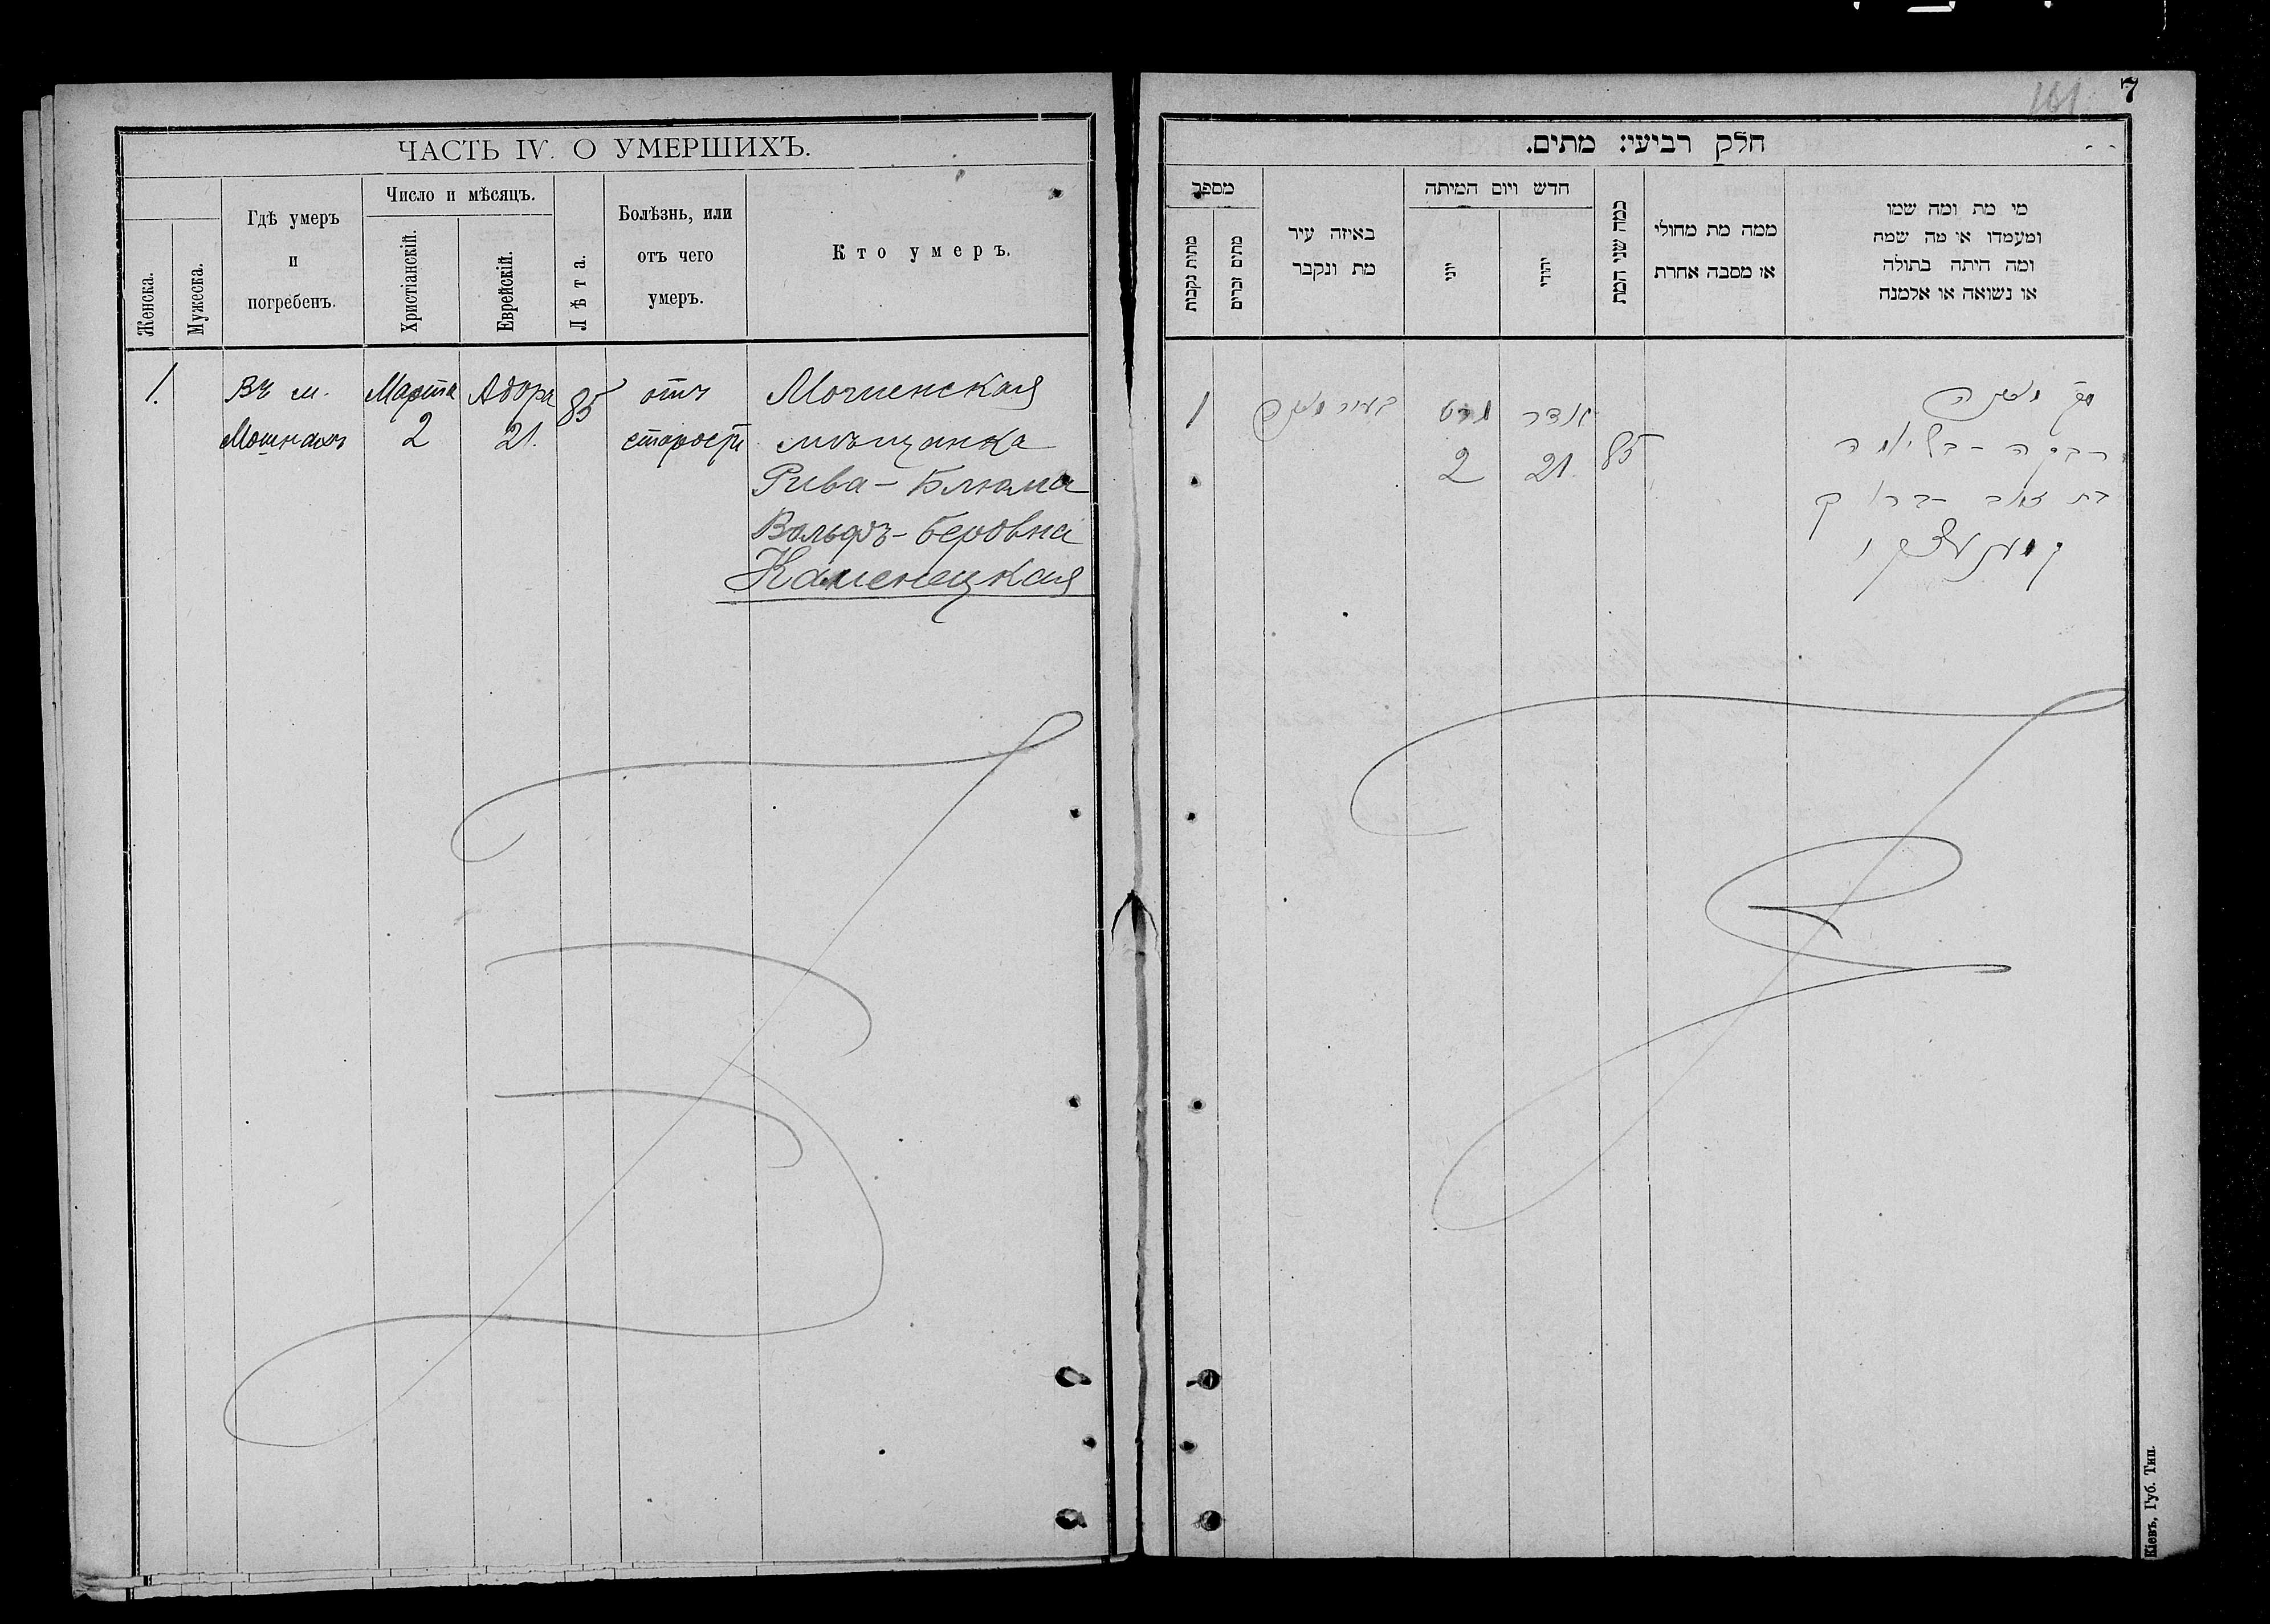 7
ЧАСТЬ IV. О УМЕРШИХЪ.
Женска.
Мужеска.
Гдѣ умеръ
и
погребенъ.
Число и мѣсяцъ.
Христіанскій.
Еврейскій.
Лѣта.
Болѣзнь, или
отъ чего
умеръ.
Кто умеръ.
1.
Въ м.
Мошнахъ
Марта
2
Адора
21.
85
отъ
старости
Мошенская
мѣщанка
Рива-Блюма
Вольфъ-Беровна
Каменецкая
חלק רביעי: מתים.
מספר
מתות נקבות
מתים זכרים
באיזה עיר
מת ונקבר
חדש ויום המיתה
יוני
יהודי
כמה שני המת
ממה מת מחולי
או מסבה אחרת
מי מת ומה שמו
ומעמדו או מה שמה
ומה היתה בתולה
או נשואה או אלמנה
1
2
אדר
21.
85
רבקה - בליומה
בת זאב -
Кіевъ, Губ. Тип.